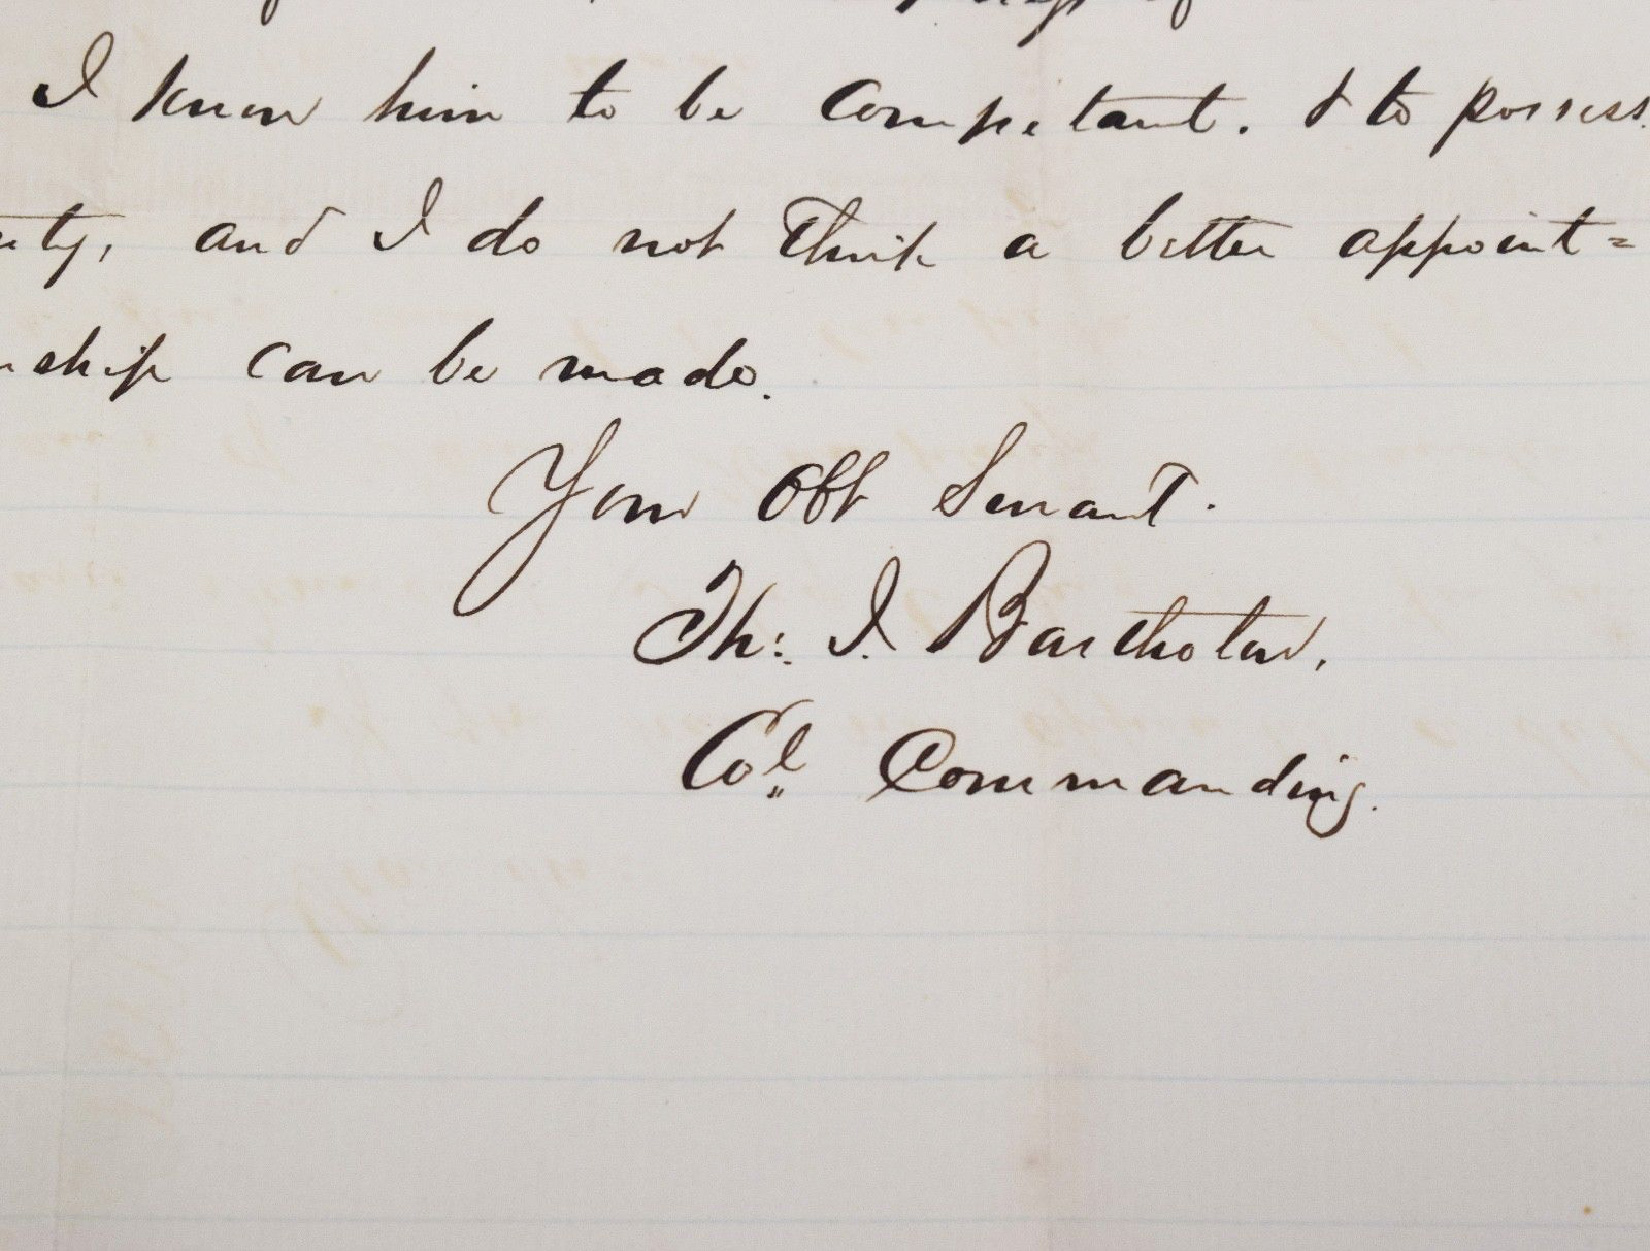 I know him to be Competant. & to possess
and I do not Think a better appoint=
ship can be made.
Your Obt Servant.
Th: J. Bartholow,
Col Commanding.